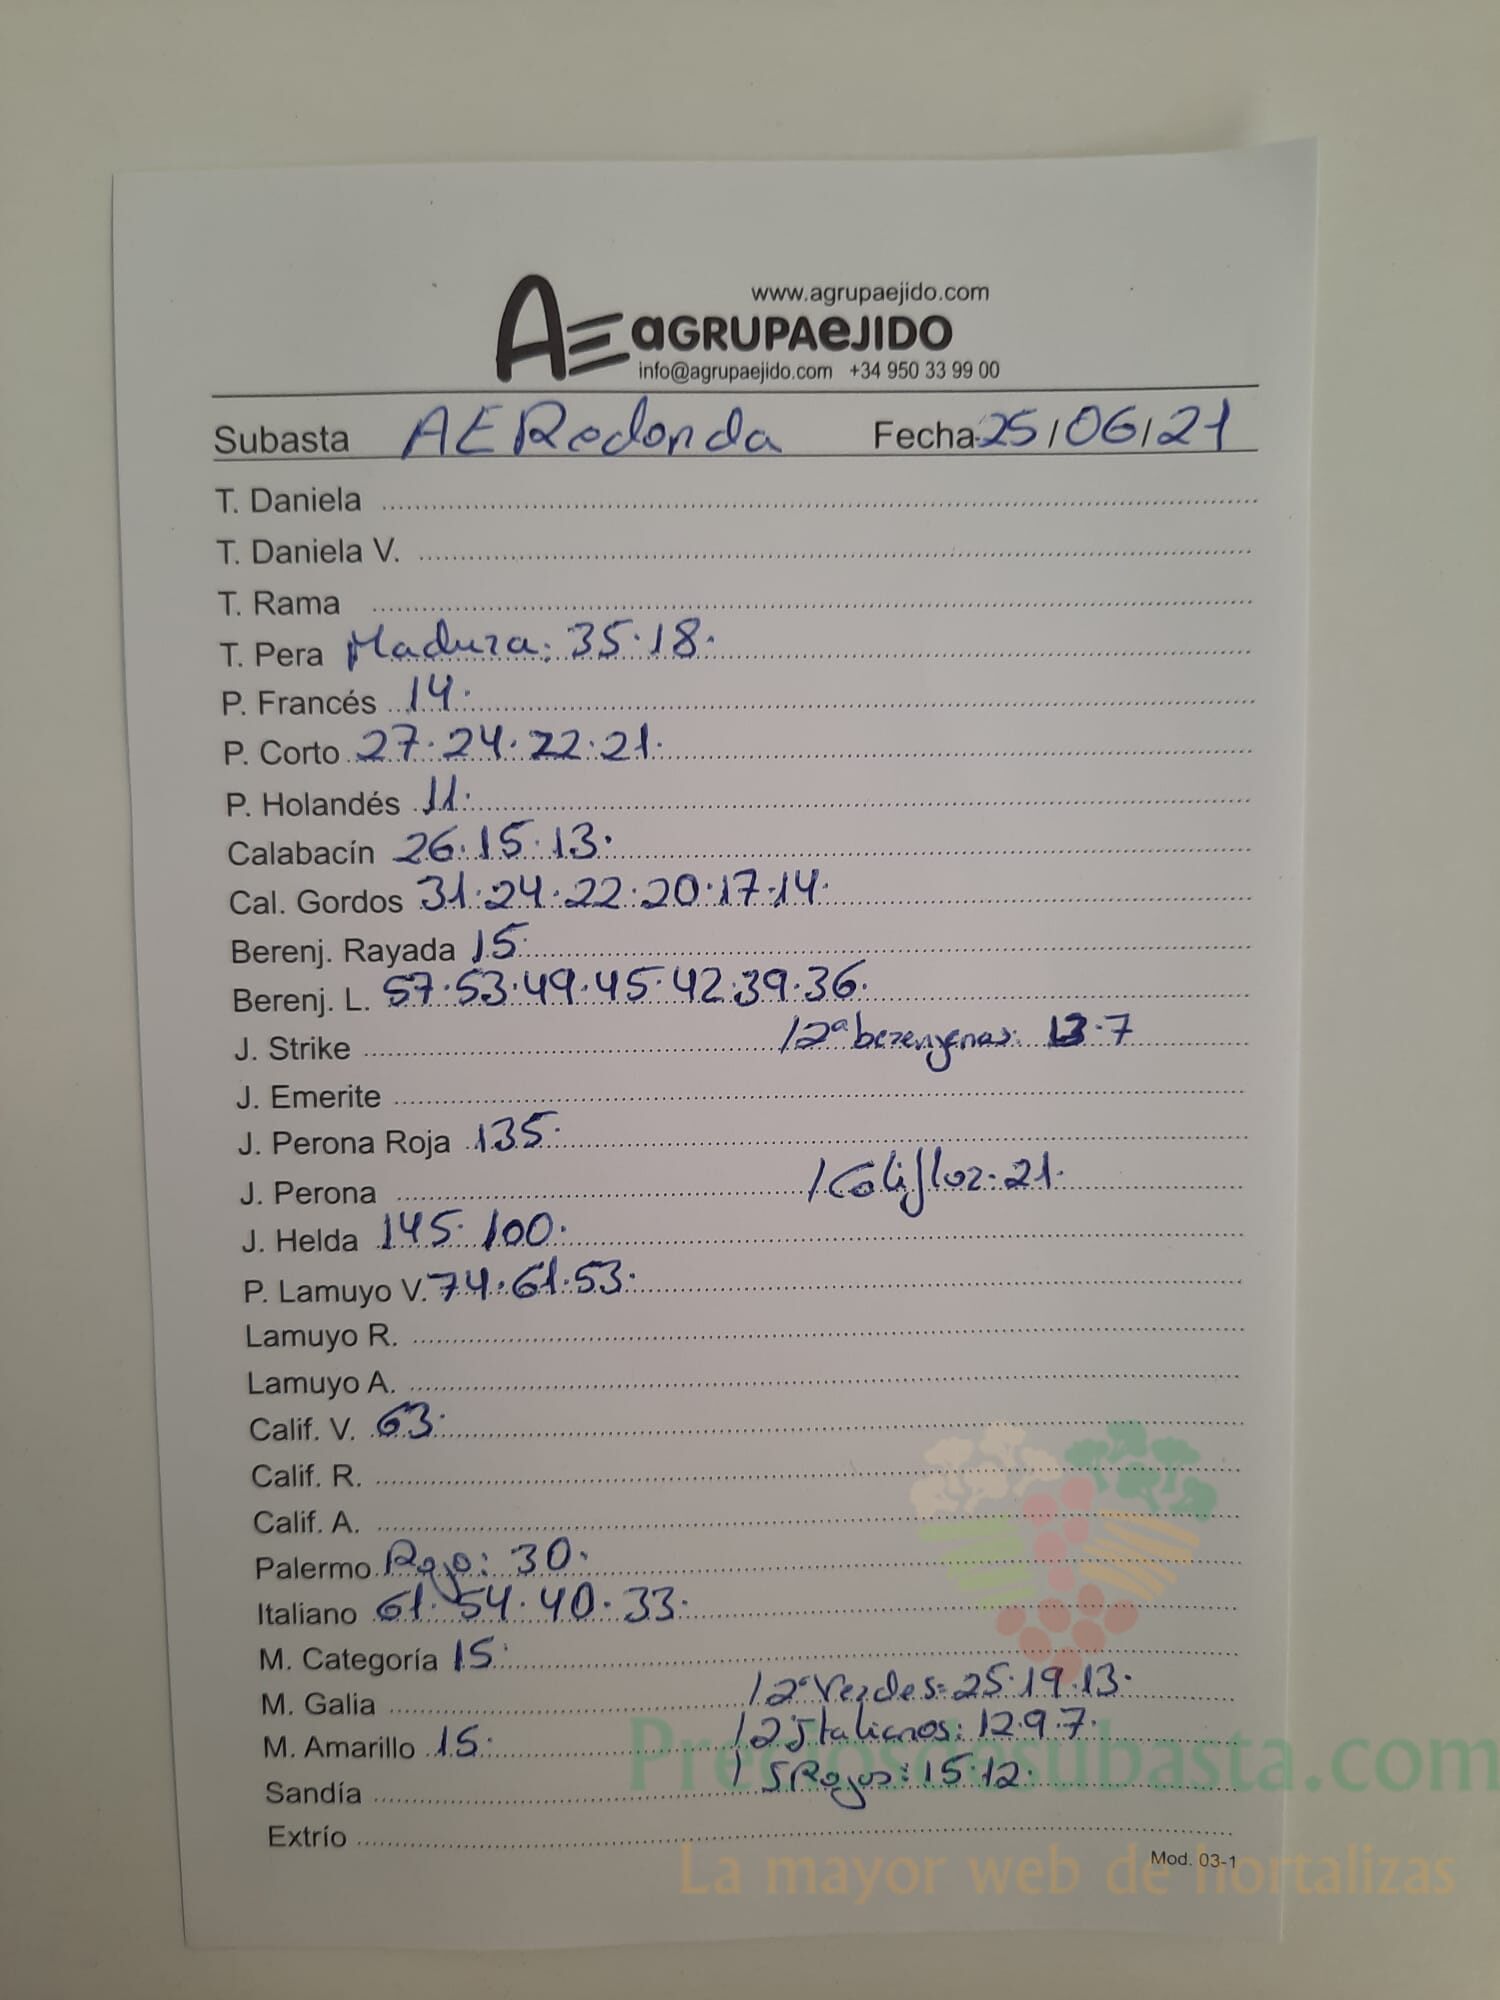 www.agrupaejido.com
AE aGRUPAeJIDO
info@agrupaejido.com +34 950 33 99 00
Subasta AE Redonda Fecha 25/06/21
T. Daniela
T. Daniela V.
T. Rama
T. Pera Madura: 35·18·
P. Francés 14·
P. Corto 27·24·22·21·
P. Holandés 11·
Calabacín 26·15·13·
Cal. Gordos 31·24·22·20·17·14·
Berenj. Rayada 15·
Berenj. L. 57·53·49·45·42·39·36·
J. Strike /2ª berenjenas: 13·7
J. Emerite
J. Perona Roja 135·
J. Perona /Coliflor·21·
J. Helda 145·100·
P. Lamuyo V. 74·61·53·
Lamuyo R.
Lamuyo A.
Calif. V. 63·
Calif. R.
Calif. A.
Palermo Rojo: 30·
Italiano 61·54·40·33·
M. Categoría 15·
M. Galia /2ª Verdes=25·19·13·
M. Amarillo 15· /2 Italianos: 12·9·7·
Sandía / S Rojos: 15·12·
Extrío
Mod. 03-1
Preciosdesubasta.com
La mayor web de hortalizas